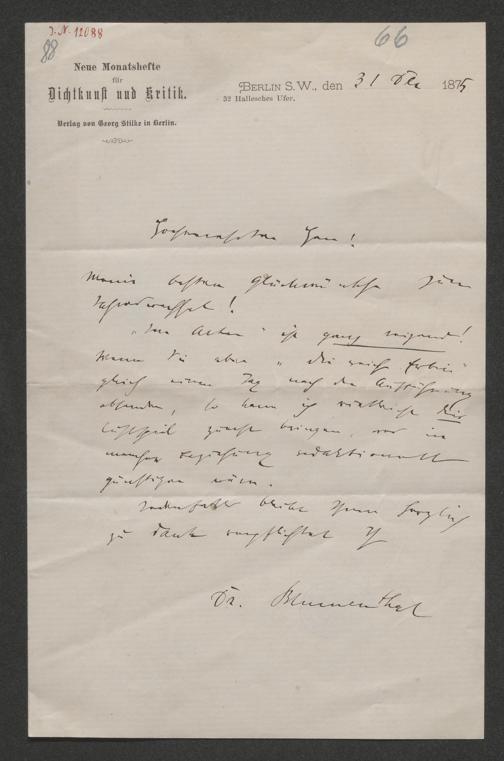 J.-N. 12088
88
66
Neue Monatshefte
für
Dichtkunst und Kritik.
Verlag von Georg Stilke in Berlin.
BERLIN S.W., den 31 Dec 1875
32 Hallesches Ufer.
Hochverehrter Herr!
Meine besten Glückwünsche zum
Jahreswechsel!
ist ganz reizend!
Wenn Sie aber „die reiche Erbin“
gleich einen Tag nach der Aufführung
absenden, so kann ich vielleicht
Lustspiel zuerst bringen, was in
mancher Beziehung redaktionell
günstiger wäre.
Jedenfalls bleibe Ihnen herzlich
zu Dank verpflichtet
Dr. Blumenthal